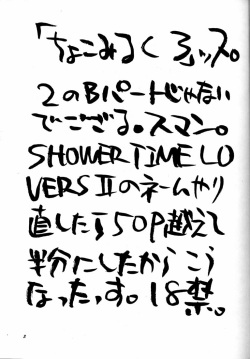 「ちょこみるくろッス。
2のBパートじゃない
でござる。スマン。
SHOWER TIME LO
VERS IIのネームやり
直したら50P越えて
半分にしたからこう
なったっす。18禁。
2